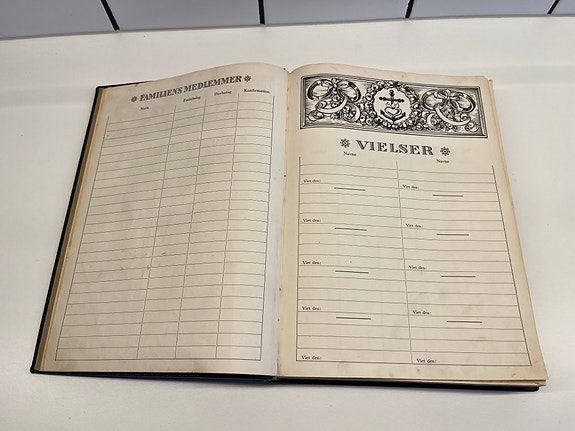 FAMILIENS MEDLEMMER
Navn Fødselsdag Daabsdag Konfirmation
VIELSER
Navne Navne
Viet den: Viet den:
Viet den: Viet den:
Viet den: Viet den:
Viet den: Viet den:
Viet den: Viet den: